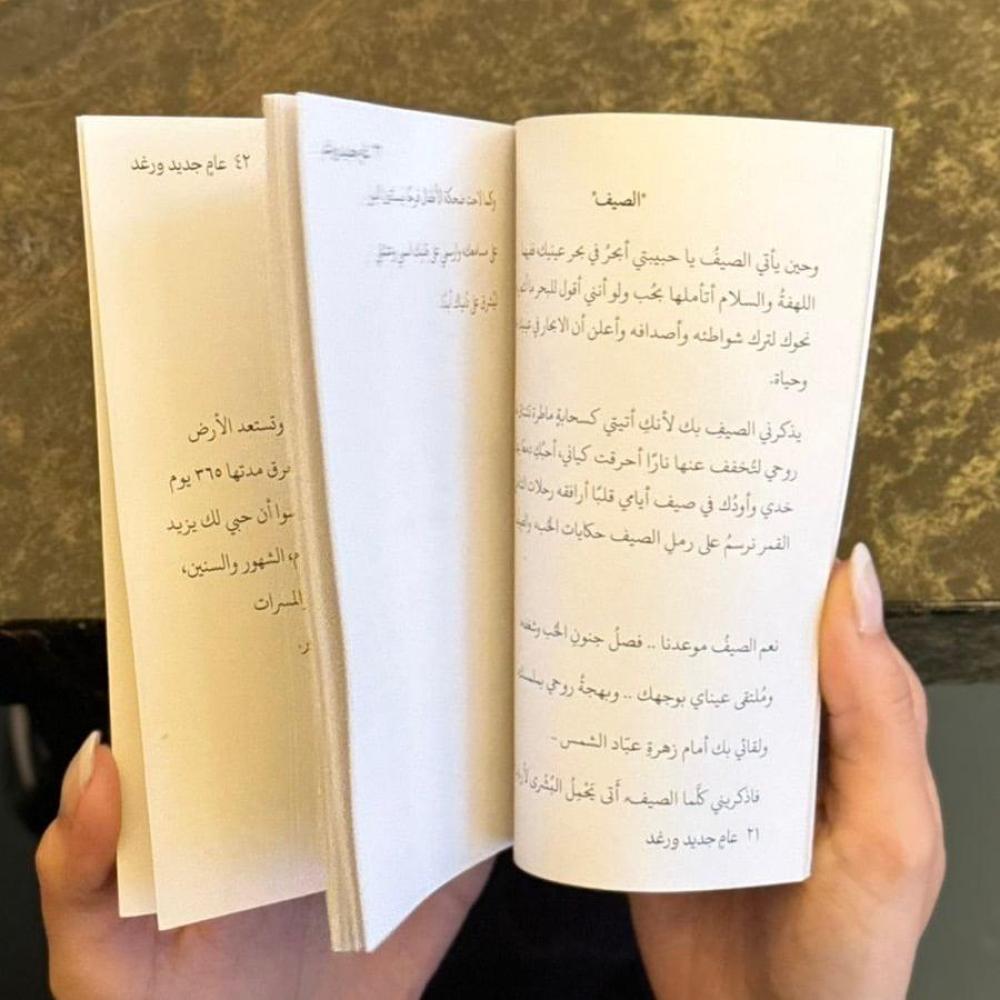 "الصيف"
وحين يأتي الصيفُ يا حبيبتي أبحرُ في بحر عينيك ففيها
اللهفةُ والسلام أتأملها بحُب ولو أنني أقول للبحر
نحوك لترك شواطئه وأصدافه وأعلن أن الابحار في
وحياة.
يذكرني الصيفِ بك لأنكِ أتيتي كسحابةٍ ماطرة
روحي لتُخفف عنها نارًا أحرقت كياني، أحبُك
خدي وأودُك في صيف أيامي قلبًا أرافقه رحلات
القمر نرسمُ على رملِ الصيف حكايات الحُب
نعم الصيفُ موعدنا .. فصلُ جنونِ الحُب
ومُلتقى عيناي بوجهك .. وبهجةُ روحي
ولقائي بك أمام زهرةِ عبّاد الشمس ..
فاذكريني كلَّما الصيف أَتى يَحْمِلُ البُشْرى
٢١ عام جديد ورغد
وكما لاحت ضحكة الأطفال فرحًا
على
لتُشرق على
٤٢ عام جديد ورغد
وتستعد الأرض
مدتها ٣٦٥ يوم
أن حبي لك يزيد
الشهور والسنين،
المسرات